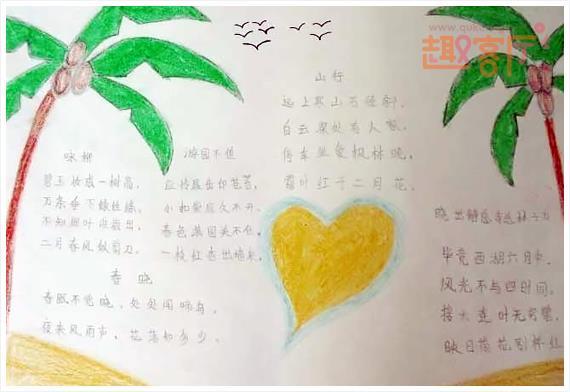 www.quket
趣客厅
山行
远上寒山石径斜,
白云深处有人家,
停车坐爱枫林晚,
霜叶红于二月花,
咏柳
碧玉妆成一树高,
万条垂下绿丝绦,
不知细叶谁裁出,
二月春风似剪刀.
游园不值
应怜屐齿印苍苔,
小扣柴扉久不开,
春色满园关不住,
一枝红杏出墙来,
春晓
春眠不觉晓,处处闻啼鸟,
夜来风雨声,花落知多少,
晓出净慈寺送林子方
毕竟西湖六月中,
风光不与四时同,
接天莲叶无穷碧,
映日荷花别样红